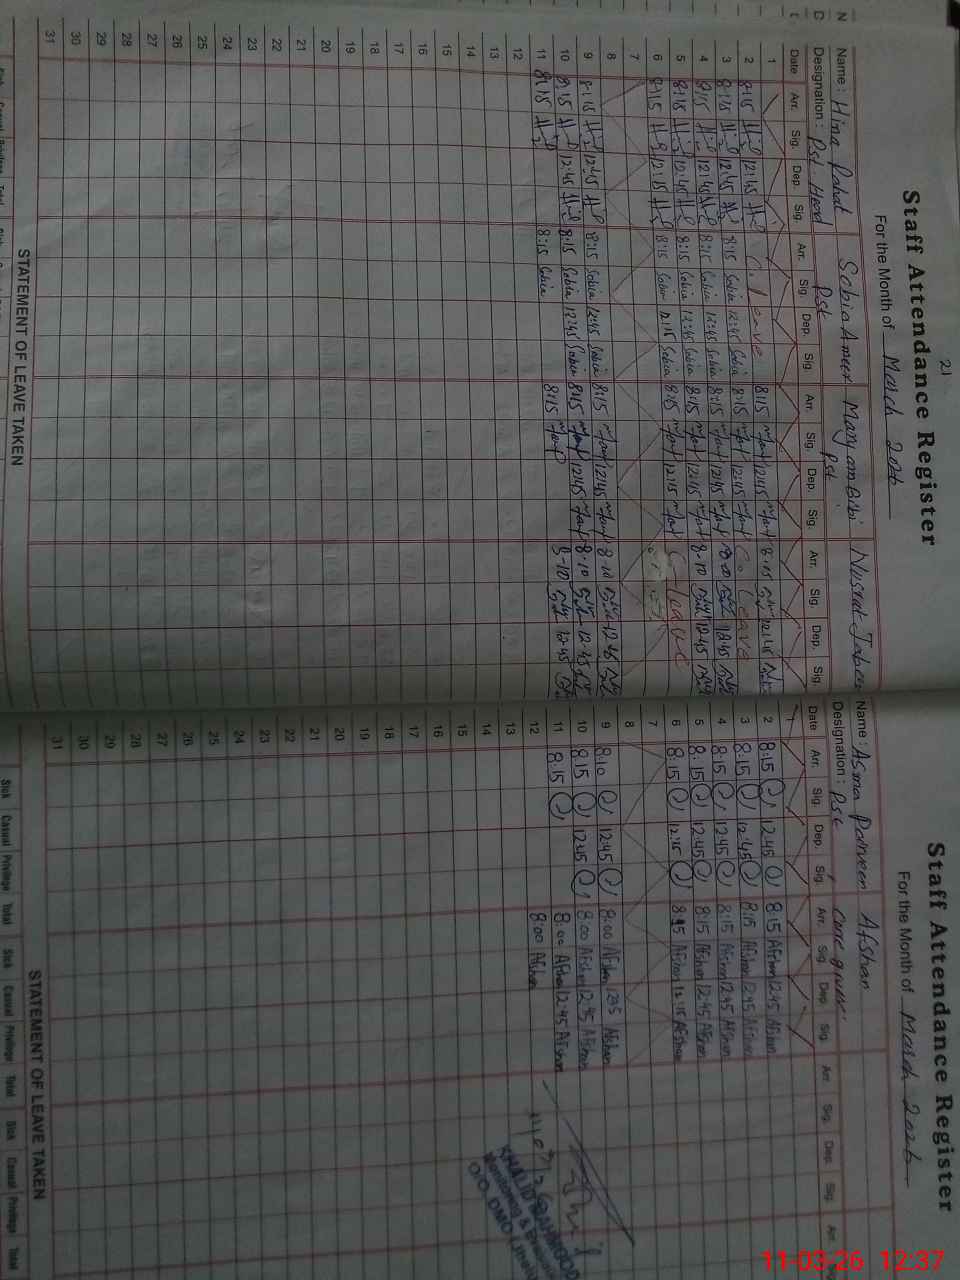 21
Staff Attendance Register
For the Month of March 2026
Name: Hina Rahat Sobia Ameer Maryam Bibi Nusrat Jabeen
Designation: Pst Head Pst Pst
Date Arr. Sig. Dep. Sig. Arr. Sig. Dep. Sig. Arr. Sig. Dep. Sig. Arr. Sig. Dep. Sig.
1
2 8:15 12:45 C. Leave 8:15 12:45 8:15 12:45
3 8:15 12:45 8:15 Sobia 12:45 Sobia 8:15 12:45 C. Leave
4 8:15 12:45 8:15 Sobia 12:45 Sobia 8:15 12:45 8:00 12:45
5 8:15 12:45 8:15 Sobia 12:45 Sobia 8:15 12:45 8-10 12:45
6 8:15 12:15 8:15 Sobia 12:15 Sobia 8:15 12:15 C-leave
7
8
9 8:15 12:45 8:15 Sobia 12:45 Sobia 8:15 12:45 8-10 12-45
10 8:15 12:45 8:15 Sobia 12:45 Sobia 8:15 12:45 8-10 12-45
11 8:15 8:15 Sobia 8:15 8-10 12:45
12
13
14
15
16
17
18
19
20
21
22
23
24
25
26
27
28
29
30
31
STATEMENT OF LEAVE TAKEN
Staff Attendance Register
For the Month of March 2026
Name: Asma Parveen Afshan
Designation: Pst Care giver
Date Arr. Sig. Dep. Sig. Arr. Sig. Dep. Sig. Arr. Sig. Dep. Sig. Arr.
1
2 8:15 12:45 8:15 Afshan 12:45 Afshan
3 8:15 12:45 8:15 Afshan 12:45 Afshan
4 8:15 12:45 8:15 Afshan 12:45 Afshan
5 8:15 12:45 8:15 Afshan 12:45 Afshan
6 8:15 12:15 8:15 Afshan 12:15 Afshan
7
8
9 8:10 12:45 8:00 Afshan Afshan
10 8:15 12:45 8:00 Afshan 12:45 Afshan
11 8:15 8:00 Afshan 12:45 Afshan
12 8:00 Afshan
13
14
15
16
17
18
19
20
21
22
23
24
25
26
27
28
29
30
31
11/03/26
KHALID MAHMOOD
Monitoring &
O/O. DMO
STATEMENT OF LEAVE TAKEN
Sick Casual Privilege Total Sick Casual Privilege Total Sick Casual Privilege Total
11-03-26 12:37